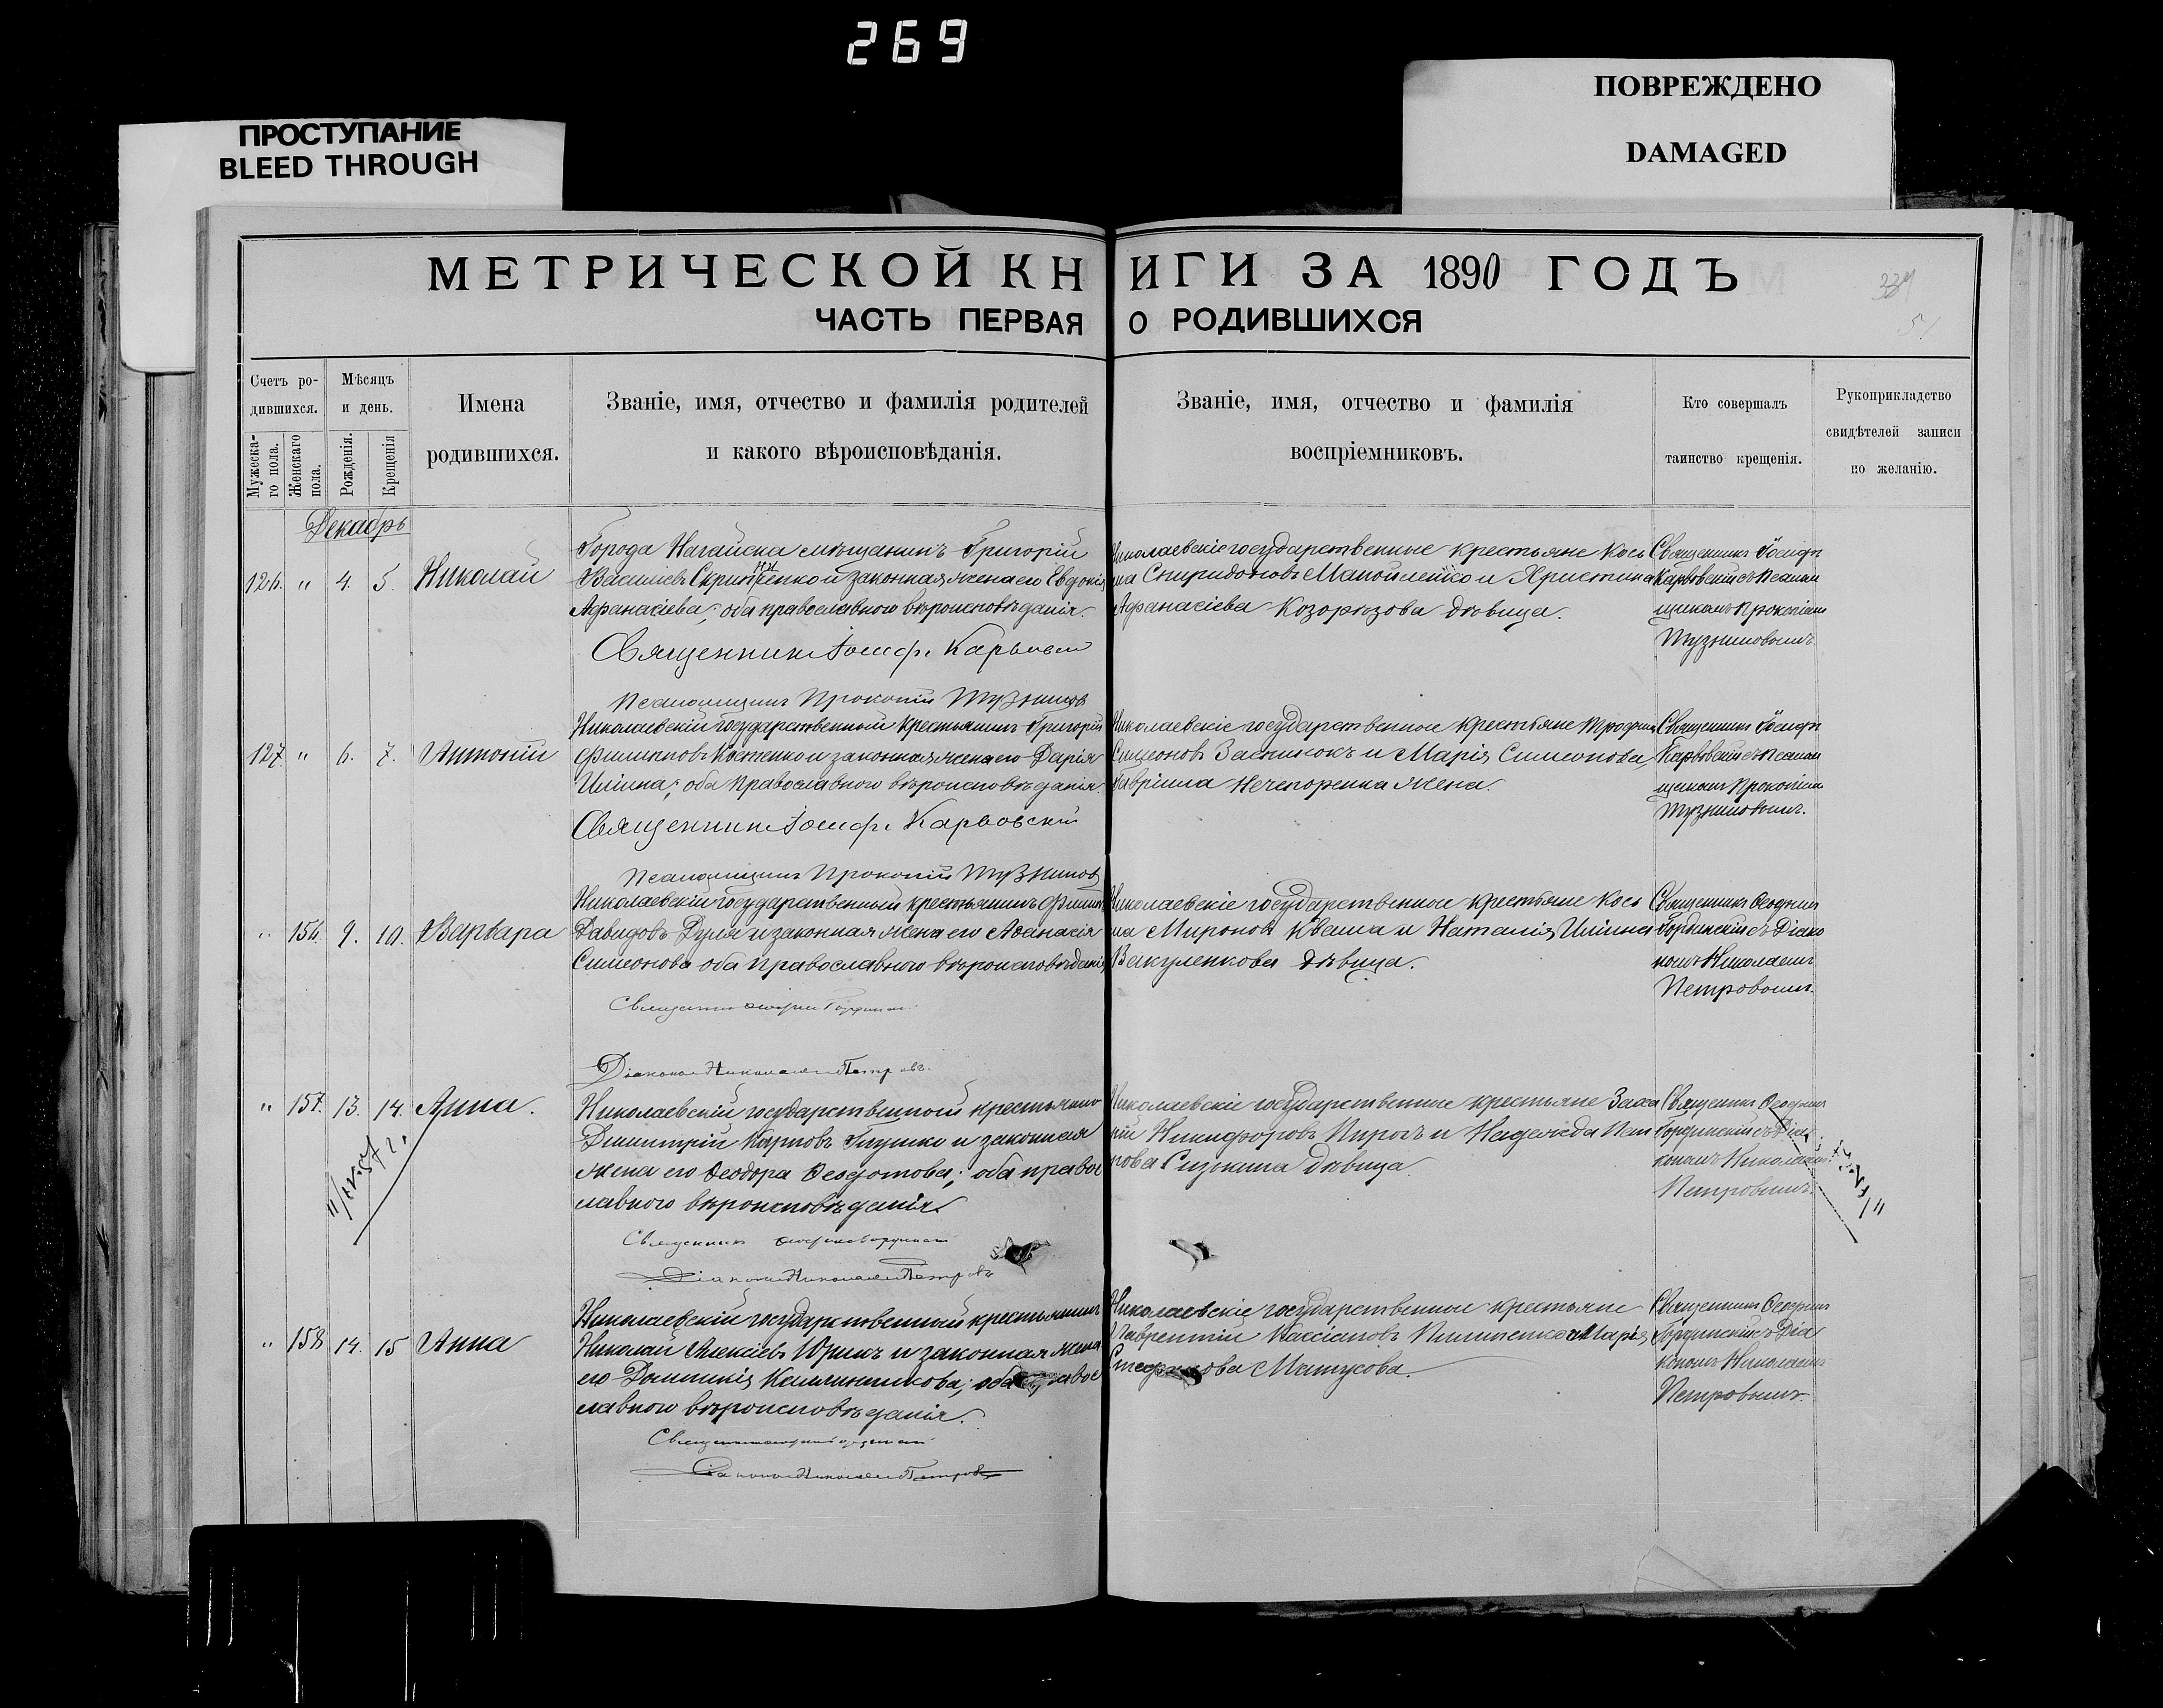 269
ПРОСТУПАНИЕ
BLEED THROUGH
ПОВРЕЖДЕНО
DAMAGED
МЕТРИЧЕСКОЙ КНИГИ ЗА 1890 ГОДЪ
ЧАСТЬ ПЕРВАЯ О РОДИВШИХСЯ
Счетъ ро-
дившихся.
Мужеска-
го пола.
Женскаго
пола.
Мѣсяцъ
и день.
Рожденія.
Крещенія
Имена
родившихся.
Званіе, имя, отчество и фамилія родителей
и какого вѣроисповѣданія.
Званіе, имя, отчество и фамилія
воспріемниковъ.
Кто совершалъ
таинство крещенія.
Рукоприкладство
свидѣтелей записи
по желанію.
Декабрь
126. " 4. 5. Николай
Города Нагайска мѣщанинъ Григорій
Васильевъ и законная жена его Евдокія
Афанасіева; оба православного вѣроисповѣданія.
Священникъ Іосифъ Карвовскій
Псаломщикъ Прокопій Тузниковъ
Николаевскіе государственные крестьяне Кось
ма Спиридоновъ Манойленко и Христина
Афанасіева Козорѣзова дѣвица.
Священникъ Іосифъ
Карвовскій съ Псалом
щикомъ Прокопіемъ
Тузниковымъ.
127. " 6. 7. Антоній
Николаевскій государственный крестьянинъ Григорій
Филиповъ Костенко и законная жена его Дарія
Иліина; оба Православного вѣроисповѣданія.
Священникъ Іосифъ Карвовскій
Псаломщикъ Прокопій Тузниковъ
Николаевскіе государственные крестьяне Трофимъ
Симеоновъ и Марія Симеонова,
Гавріила Нечепоренка жена.
Священникъ Іосифъ
Карвовскій съ Псалом
щикомъ Прокопіемъ
Тузниковымъ.
" 156. 9. 10. Варвара
Николаевскій государственный крестьянинъ Филипъ
Давидовъ Дуля и законная жена его Аѳанасія
Симеонова оба православного вѣроисповѣданія
Священникъ
Діаконъ Николай Петровъ.
Николаевскіе государственные крестьяне Кось
ма Мироновъ Кваша и Наталія Иліина
Вакуленкова дѣвица.
Священникъ Ѳеофилъ
Гординскій съ Діако
номъ Николаемъ
Петровымъ.
" 157. 13. 14. Анна.
Николаевскій государственный крестьянинъ
Димитрій Карповъ Глушко и законная
жена его Ѳеодора Ѳеодотова; оба право
славного вѣроисповѣданія.
Священникъ
Діаконъ Николай Петровъ
Николаевскіе государственные крестьяне Заха
рій Никифоровъ Пирогъ и Надежда Пет
рова дѣвица.
Священникъ Ѳеофилъ
Гординскій съ Діа
кономъ Николаемъ
Петровымъ.
" 158 14. 15 Анна
Николаевскій государственный крестьянинъ
Николай Алексіевъ Юрикъ и законная жена
его Домникія Калинникова; оба правос
лавного вѣроисповѣданія.
Священникъ
Діаконъ Николай Петровъ
Николаевскіе государственные крестьяне
Лаврентій Кассіановъ Пилипенко и Марія
Стефанова Матусова.
Священникъ Ѳеофилъ
Гординскій съ Діа
кономъ Николаемъ
Петровымъ.